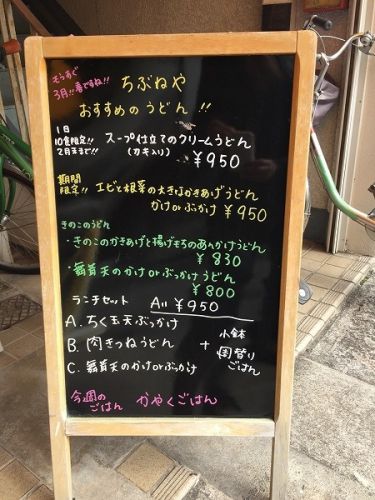 もうすぐ
3月!! 春ですね!!
ちぶねや
おすすめのうどん !!
1日
10食限定!!
2月末まで!!
スープ仕立てのクリームうどん
(カキ入り) ¥950
期間
限定!!
エビと根菜の大きなかきあげうどん
かけorぶっかけ ¥950
きのこのうどん
・きのこのかきあげと揚げもちのあんかけうどん
¥830
・舞茸天のかけorぶっかけうどん
¥800
ランチセット All ¥950
A. ちく玉天ぶっかけ
B. 肉きつねうどん
C. 舞茸天のかけorぶっかけ
+
小鉢
日替り
ごはん
今週の
ごはん
かやくごはん